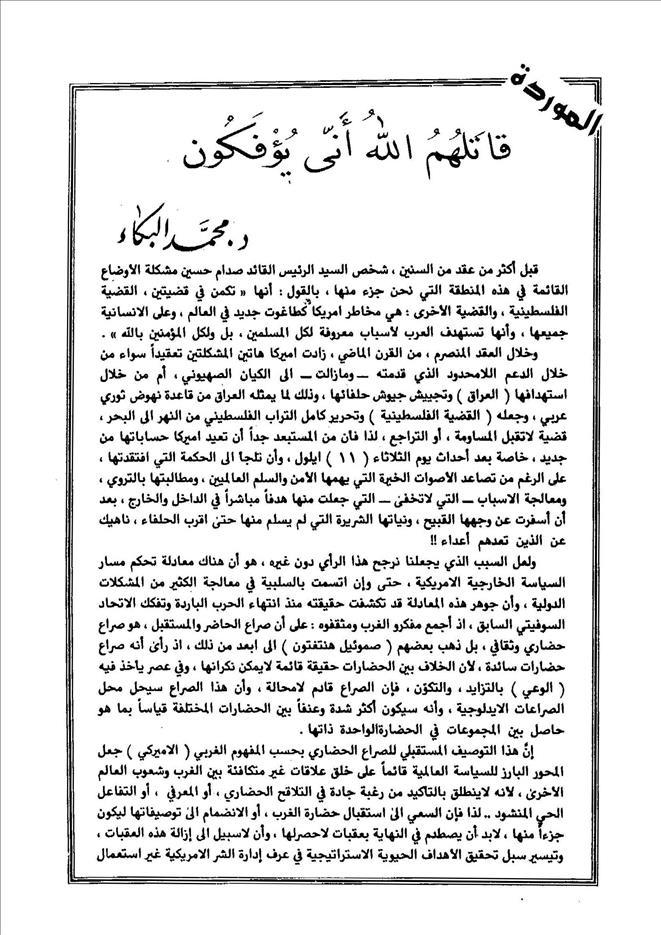 الموردة
قاتلهم الله أنّى يُؤفكون
د. محمّد البكاء
قبل أكثر من عقد من السنين ، شخص السيد الرئيس القائد صدام حسين مشكلة الأوضاع
القائمة في هذه المنطقة التي نحن جزء منها ، بالقول : أنها « تكمن في قضيتين ، القضية
الفلسطينية ، والقضية الأخرى : هي مخاطر امريكا كطاغوت جديد في العالم ، وعلى الانسانية
جميعها ، وأنها تستهدف العرب لأسباب معروفة لكل المسلمين ، بل ولكل المؤمنين بالله » .
وخلال العقد المنصرم ، من القرن الماضي ، زادت اميركا هاتين المشكلتين تعقيداً سواء من
خلال الدعم اللامحدود الذي قدمته ــ ومازالت ــ الى الكيان الصهيوني ، أم من خلال
استهدافها ( العراق ) وتجييش جيوش حلفائها ، وذلك لما يمثله العراق من قاعدة نهوض ثوري
عربي ، وجعله ( القضية الفلسطينية ) وتحرير كامل التراب الفلسطيني من النهر الى البحر ،
قضية لاتقبل المساومة ، أو التراجع ، لذا فان من المستبعد جداً أن تعيد اميركا حساباتها من
جديد ، خاصة بعد أحداث يوم الثلاثاء ( ١١ ) ايلول ، وأن تلجا الى الحكمة التي افتقدتها ،
على الرغم من تصاعد الأصوات الخيرة التي يهمها الأمن والسلم العالميين ، ومطالبتها بالتروي ،
ومعالجة الاسباب ــ التي لاتخفى ــ التي جعلت منها هدفاً مباشراً في الداخل والخارج ، بعد
أن أسفرت عن وجهها القبيح ، ونياتها الشريرة التي لم يسلم منها حتى اقرب الحلفاء ، ناهيك
عن الذين تعدهم أعداء !!
ولعل السبب الذي يجعلنا نرجح هذا الرأي دون غيره ، هو أن هناك معادلة تحكم مسار
السياسة الخارجية الامريكية ، حتى وإن اتسمت بالسلبية في معالجة الكثير من المشكلات
الدولية ، وأن جوهر هذه المعادلة قد تكشفت حقيقته منذ انتهاء الحرب الباردة وتفكك الاتحاد
السوفيتي السابق ، اذ أجمع مفكرو الغرب ومثقفوه : على أن صراع الحاضر والمستقبل ، هو صراع
حضاري وثقافي ، بل ذهب بعضهم ( صموئيل هنتغتون ) الى ابعد من ذلك ، اذ رأى أنه صراع
حضارات سائدة ، لأن الخلاف بين الحضارات حقيقة قائمة لايمكن نكرانها ، وفي عصر ياخذ فيه
( الوعي ) بالتزايد ، والتكوّن ، فإن الصراع قادم لامحالة ، وأن هذا الصراع سيحل محل
الصراعات الايدلوجية ، وأنه سيكون أكثر شدة وعنفاً بين الحضارات المختلفة قياساً بما هو
حاصل بين المجموعات في الحضارةالواحدة ذاتها .
إنَّ هذا التوصيف المستقبلي للصراع الحضاري بحسب المفهوم الغربي ( الاميركي ) جعل
المحور البارز للسياسة العالمية قائماً على خلق علاقات غير متكافئة بين الغرب وشعوب العالم
الأخرى ، لأنه لاينطلق بالتأكيد من رغبة جادة في التلاقح الحضاري ، أو المعرفي ، أو التفاعل
الحي المنشود .. لذا فإن السعي الى استقبال حضارة الغرب ، أو الانضمام الى توصيفاتها ليكون
جزءاً منها ، لابد أن يصطدم في النهاية بعقبات لاحصرلها ، وأن لاسبيل الى إزالة هذه العقبات ،
وتيسير سبل تحقيق الأهداف الحيوية الاستراتيجية في عرف إدارة الشر الامريكية غير استعمال